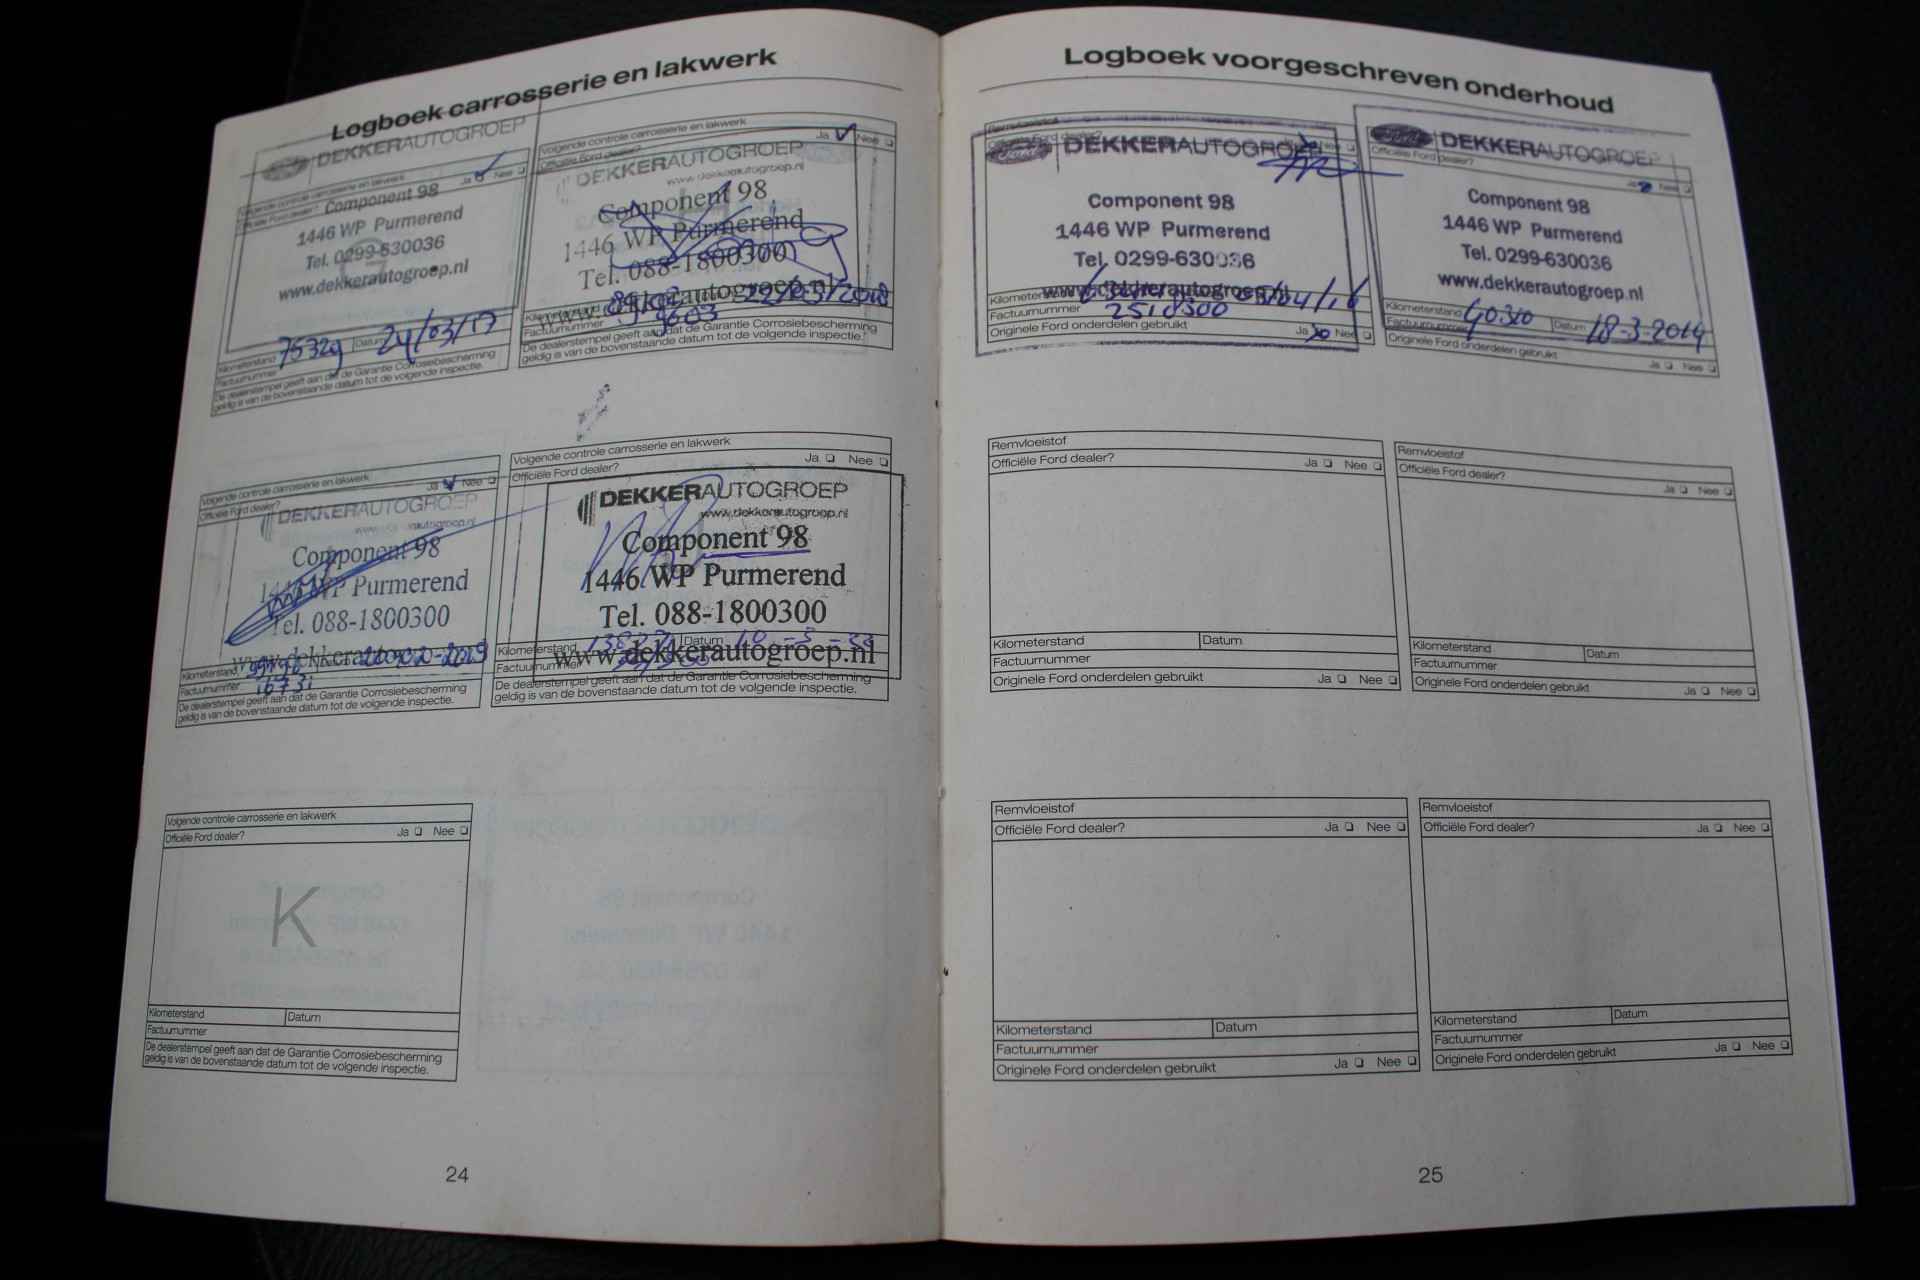 Logboek carrosserie en lakwerk
DEKKERAUTOGROEP
Volgende controle carrosserie en lakwerk
Officiële Ford dealer? Ja Nee
Component 98
1446 WP Purmerend
Tel. 0299-630036
www.dekkerautogroep.nl
Kilometerstand 75329 Datum 24/03/17
Factuurnummer
De dealerstempel geeft aan dat de Garantie Corrosiebescherming
geldig is van de bovenstaande datum tot de volgende inspectie.
Volgende controle carrosserie en lakwerk
Officiële Ford dealer? Ja Nee
DEKKERAUTOGROEP
www.dekkerautogroep.nl
Component 98
1446 WP Purmerend
Tel. 088-1800300
www.dekkerautogroep.nl
Kilometerstand 22/03/2018
Factuurnummer
De dealerstempel geeft aan dat de Garantie Corrosiebescherming
geldig is van de bovenstaande datum tot de volgende inspectie.
Volgende controle carrosserie en lakwerk
Officiële Ford dealer? Ja Nee
DEKKERAUTOGROEP
www.dekkerautogroep.nl
Component 98
1446 WP Purmerend
Tel. 088-1800300
www.dekkerautogroep.nl
Kilometerstand
Factuurnummer
De dealerstempel geeft aan dat de Garantie Corrosiebescherming
geldig is van de bovenstaande datum tot de volgende inspectie.
Volgende controle carrosserie en lakwerk
Officiële Ford dealer? Ja Nee
DEKKERAUTOGROEP
www.dekkerautogroep.nl
Component 98
1446 WP Purmerend
Tel. 088-1800300
Kilometerstand Datum
www.dekkerautogroep.nl
Factuurnummer
De dealerstempel geeft aan dat de Garantie Corrosiebescherming
geldig is van de bovenstaande datum tot de volgende inspectie.
Volgende controle carrosserie en lakwerk
Officiële Ford dealer? Ja Nee
K
Kilometerstand Datum
Factuurnummer
De dealerstempel geeft aan dat de Garantie Corrosiebescherming
geldig is van de bovenstaande datum tot de volgende inspectie.
24
Logboek voorgeschreven onderhoud
Remvloeistof
DEKKERAUTOGROEP
Component 98
1446 WP Purmerend
Tel. 0299-630036
www.dekkerautogroep.nl
Kilometerstand
Factuurnummer
Originele Ford onderdelen gebruikt Ja Nee
DEKKERAUTOGROEP
Officiële Ford dealer?
Ja Nee
Component 98
1446 WP Purmerend
Tel. 0299-630036
www.dekkerautogroep.nl
Kilometerstand 40.310 Datum 18-3-2014
Factuurnummer
Originele Ford onderdelen gebruikt
Ja Nee
Remvloeistof
Officiële Ford dealer? Ja Nee
Kilometerstand Datum
Factuurnummer
Originele Ford onderdelen gebruikt Ja Nee
Remvloeistof
Officiële Ford dealer? Ja Nee
Kilometerstand Datum
Factuurnummer
Originele Ford onderdelen gebruikt Ja Nee
Remvloeistof
Officiële Ford dealer? Ja Nee
Kilometerstand Datum
Factuurnummer
Originele Ford onderdelen gebruikt Ja Nee
Remvloeistof
Officiële Ford dealer? Ja Nee
Kilometerstand Datum
Factuurnummer
Originele Ford onderdelen gebruikt Ja Nee
25